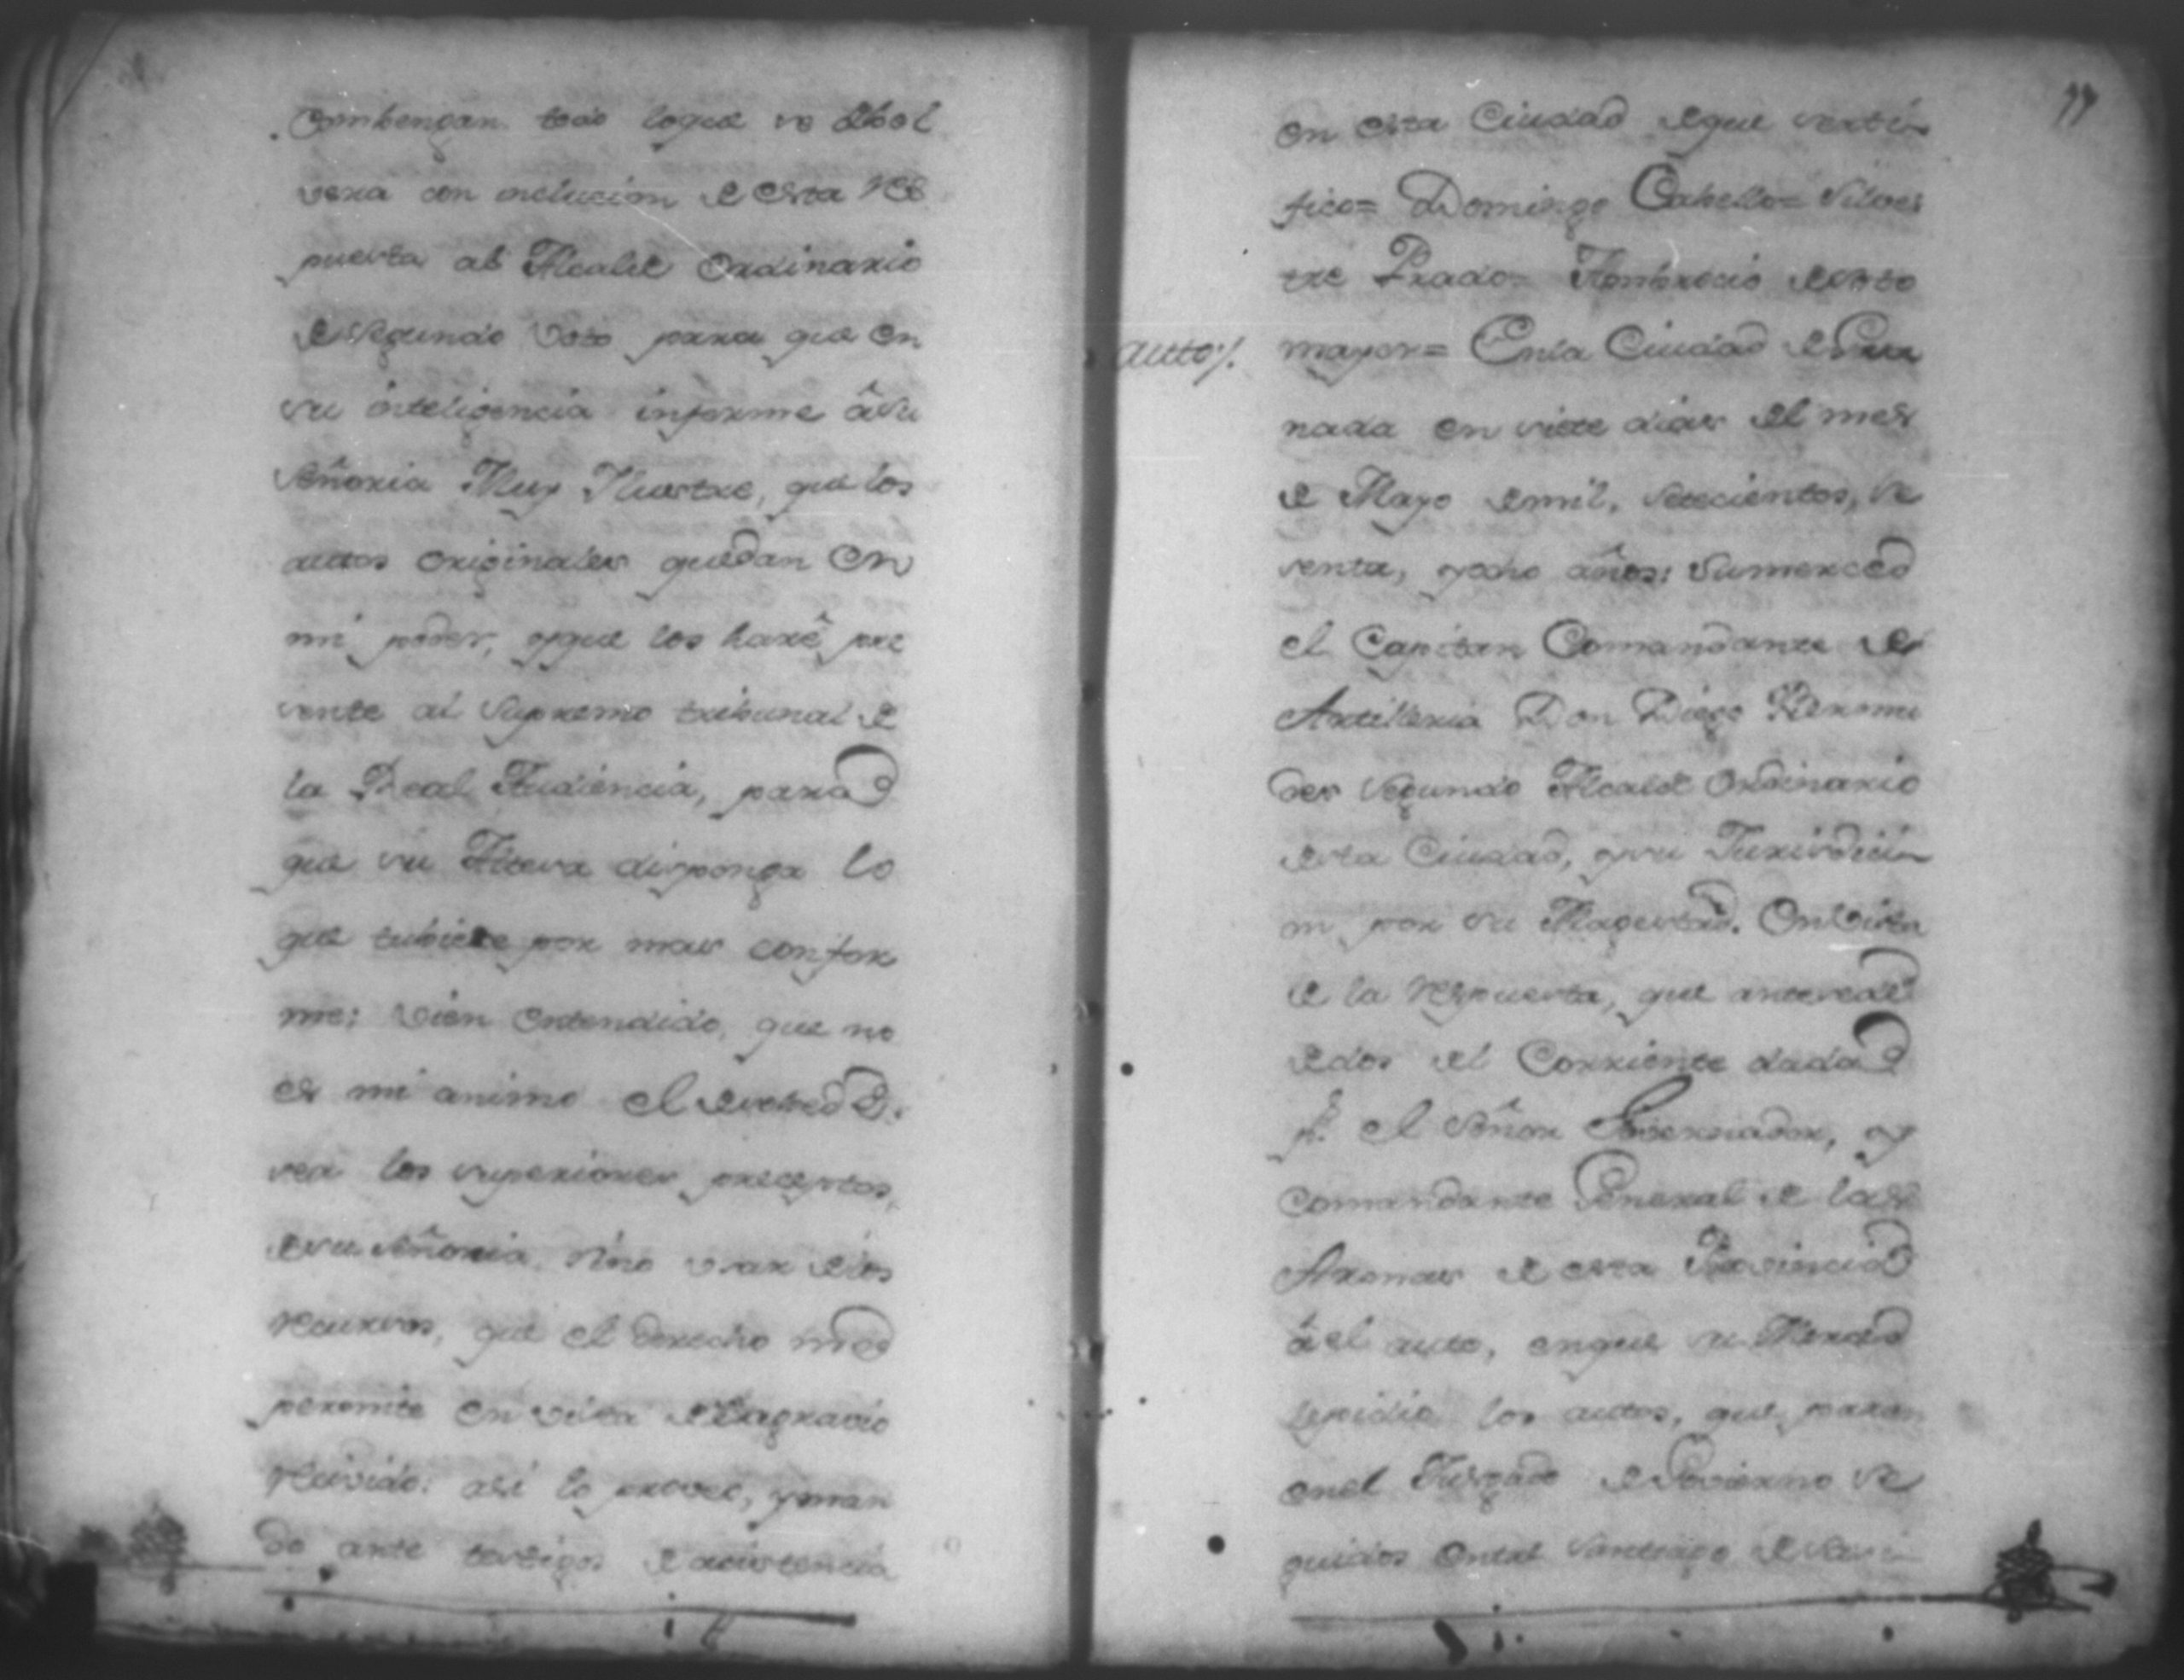 Combengan todo loque se debol
vera con inclucion de esta Res
puesta al Alcalde Ordinario
de segundo Voto para que en
su inteligencia informe â su
Señoria Muy Ilustre, que los
autos originales quedan en
mi poder, y que los harê pre
sente al Supremo tribunal de
la Real Audiencia, para
que su Alteza disponga lo
que tubiere por mas confor
me; vien entendido, que no
es mi animo el desobede
ser los superiores preceptos,
de su Señoria, sino usar de los
recursos, que el derecho me
permite en vista del agravio
resivido: asi lo provei, y man
do ante testigos de acistencia
77
en esta Ciudad de que serti
fico= Domingo Cabello= Silves
tre Prado= Ambrocio de soto
auto/. mayor= En la Ciudad de Gra
nada en siete dias del mes
de Mayo de mil, setecientos, se
senta, y ocho años: Sumerced
el Capitan Comandante de
Artilleria Don Diego
des segundo Alcalde Ordinario
desta Ciudad, y su Jurisdición
por su Magestad. En Vista
de la respuesta, que antesede
de dos del Corriente dada
pr. el Señor Governador, y
Comandante General de las
Armas de esta Provincia
â el auto, en que su Merced
le pidio los autos, que paran
en el Jusgado de Govierno se
guidos entre Santiago de